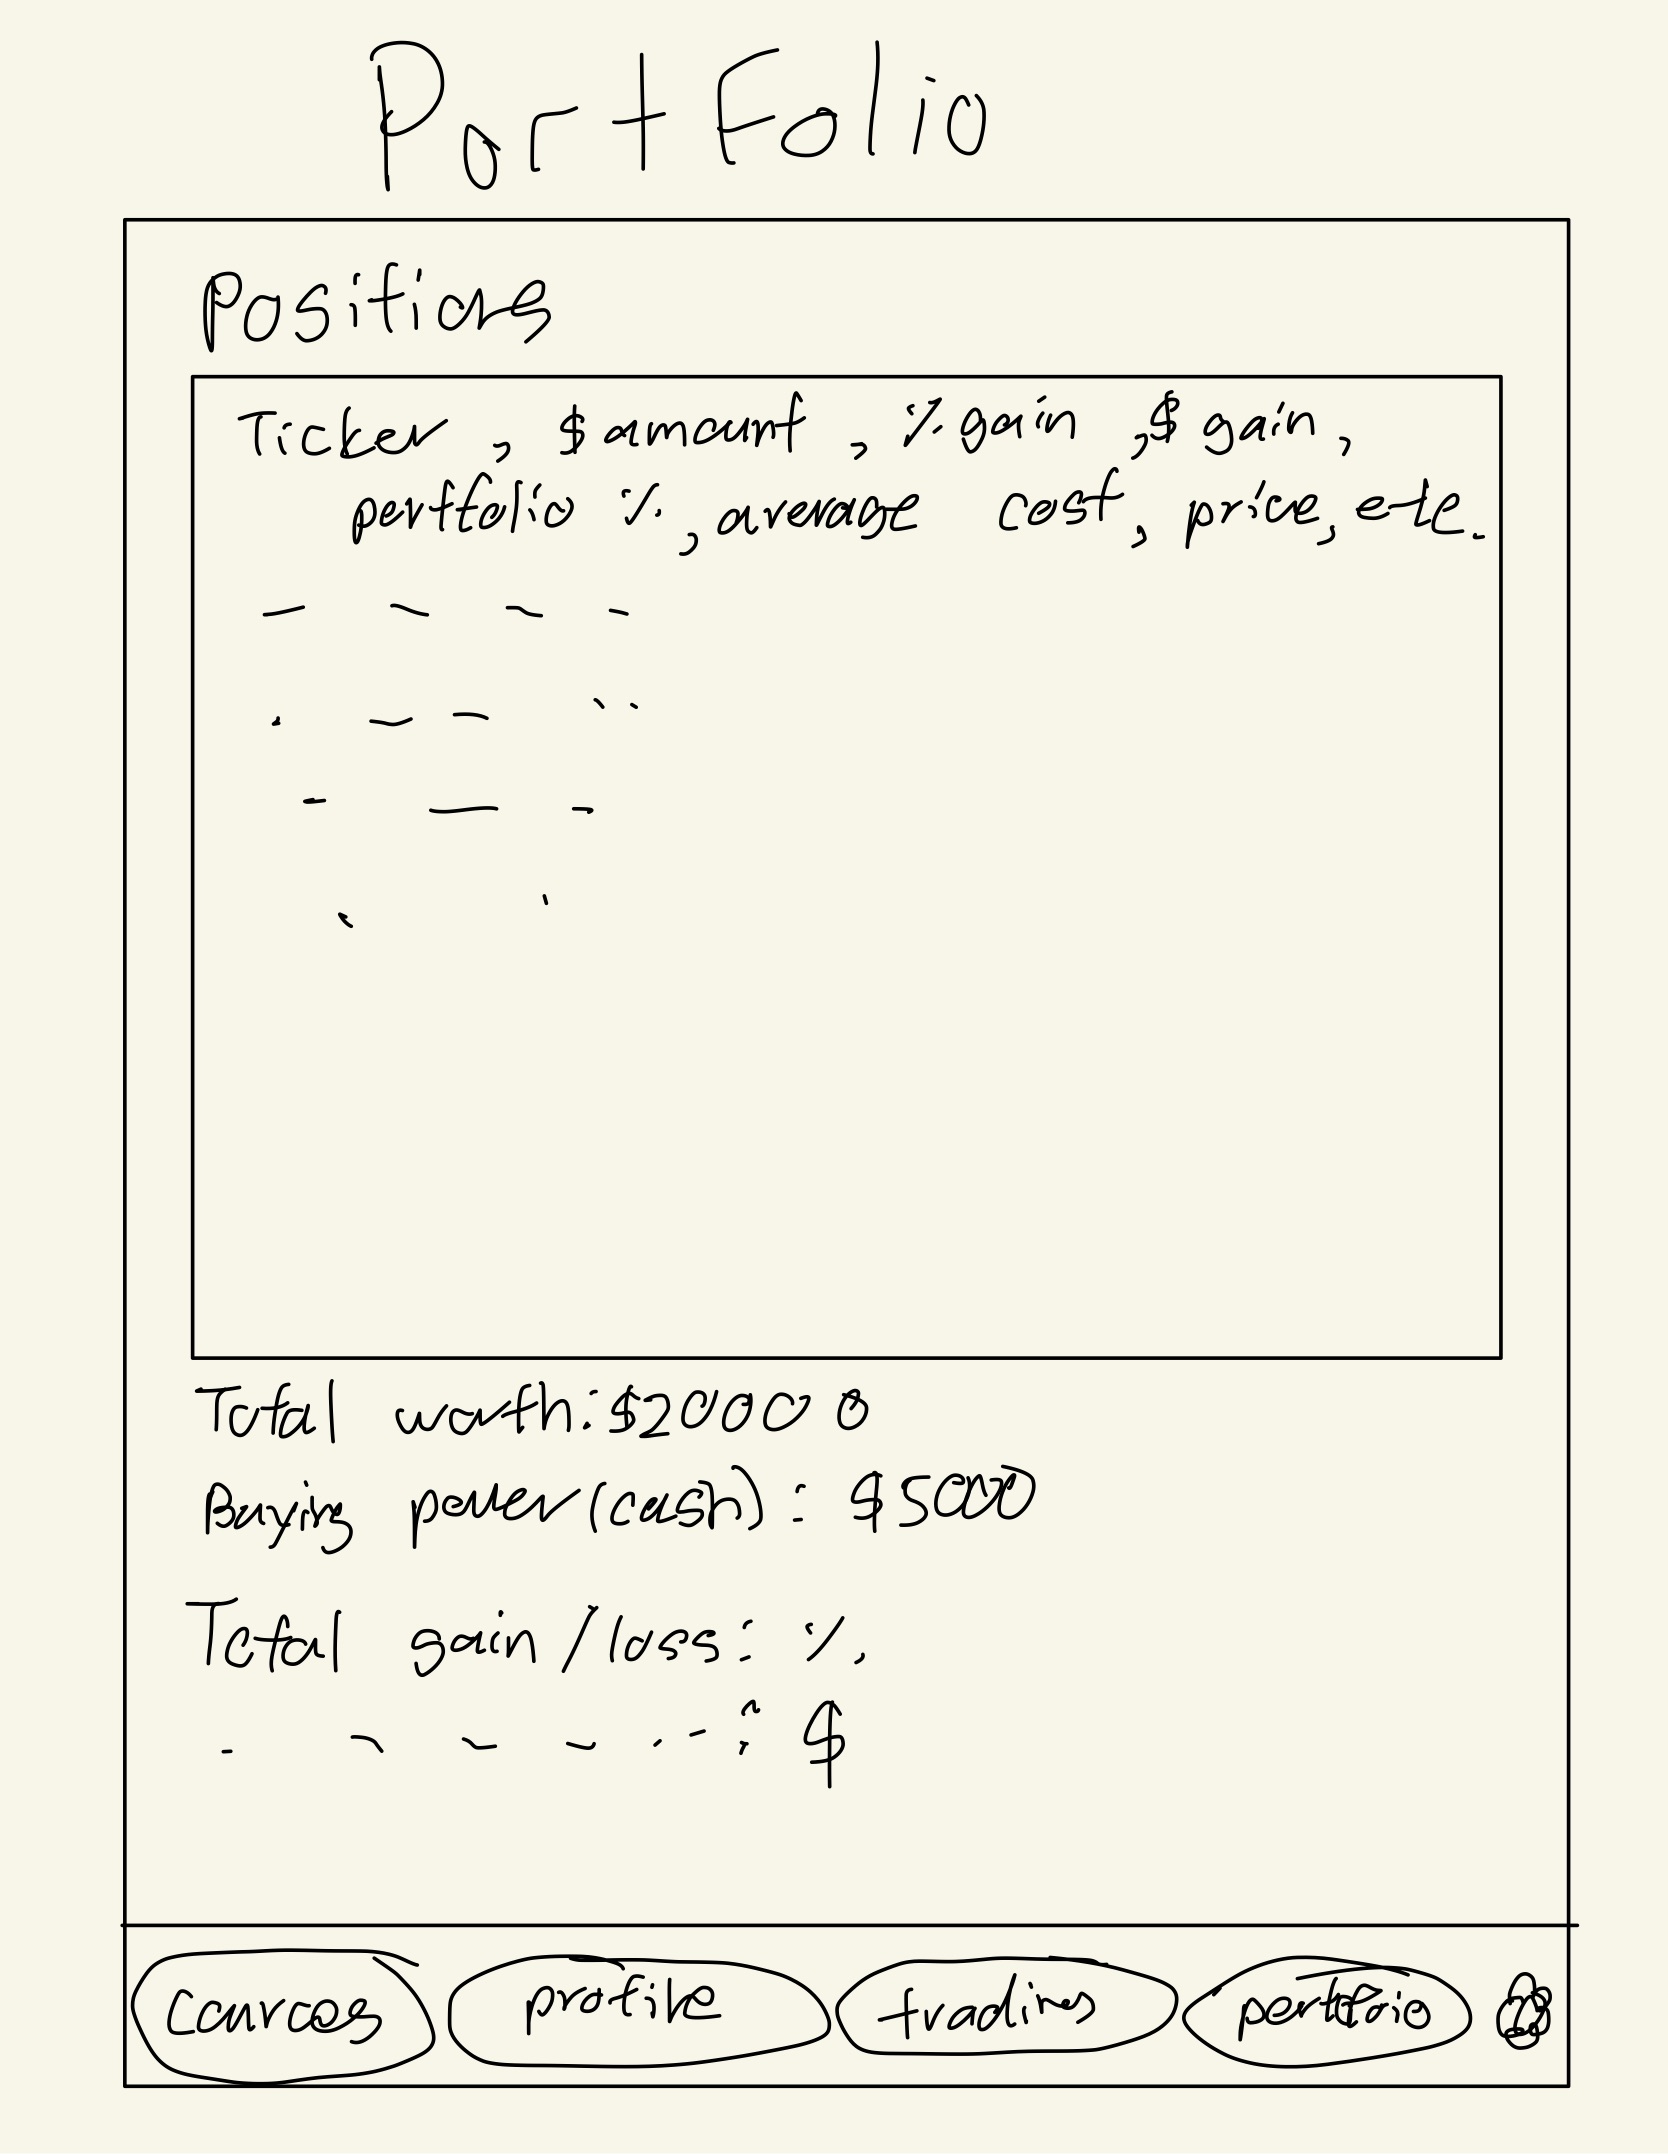 Portfolio
Positions
Ticker, $ amount, % gain, $ gain,
portfolio %, average cost, price, etc.
Total worth: $20000
Buying power (cash): $5000
Total gain/loss: %
: $
profile
trading
portfolio